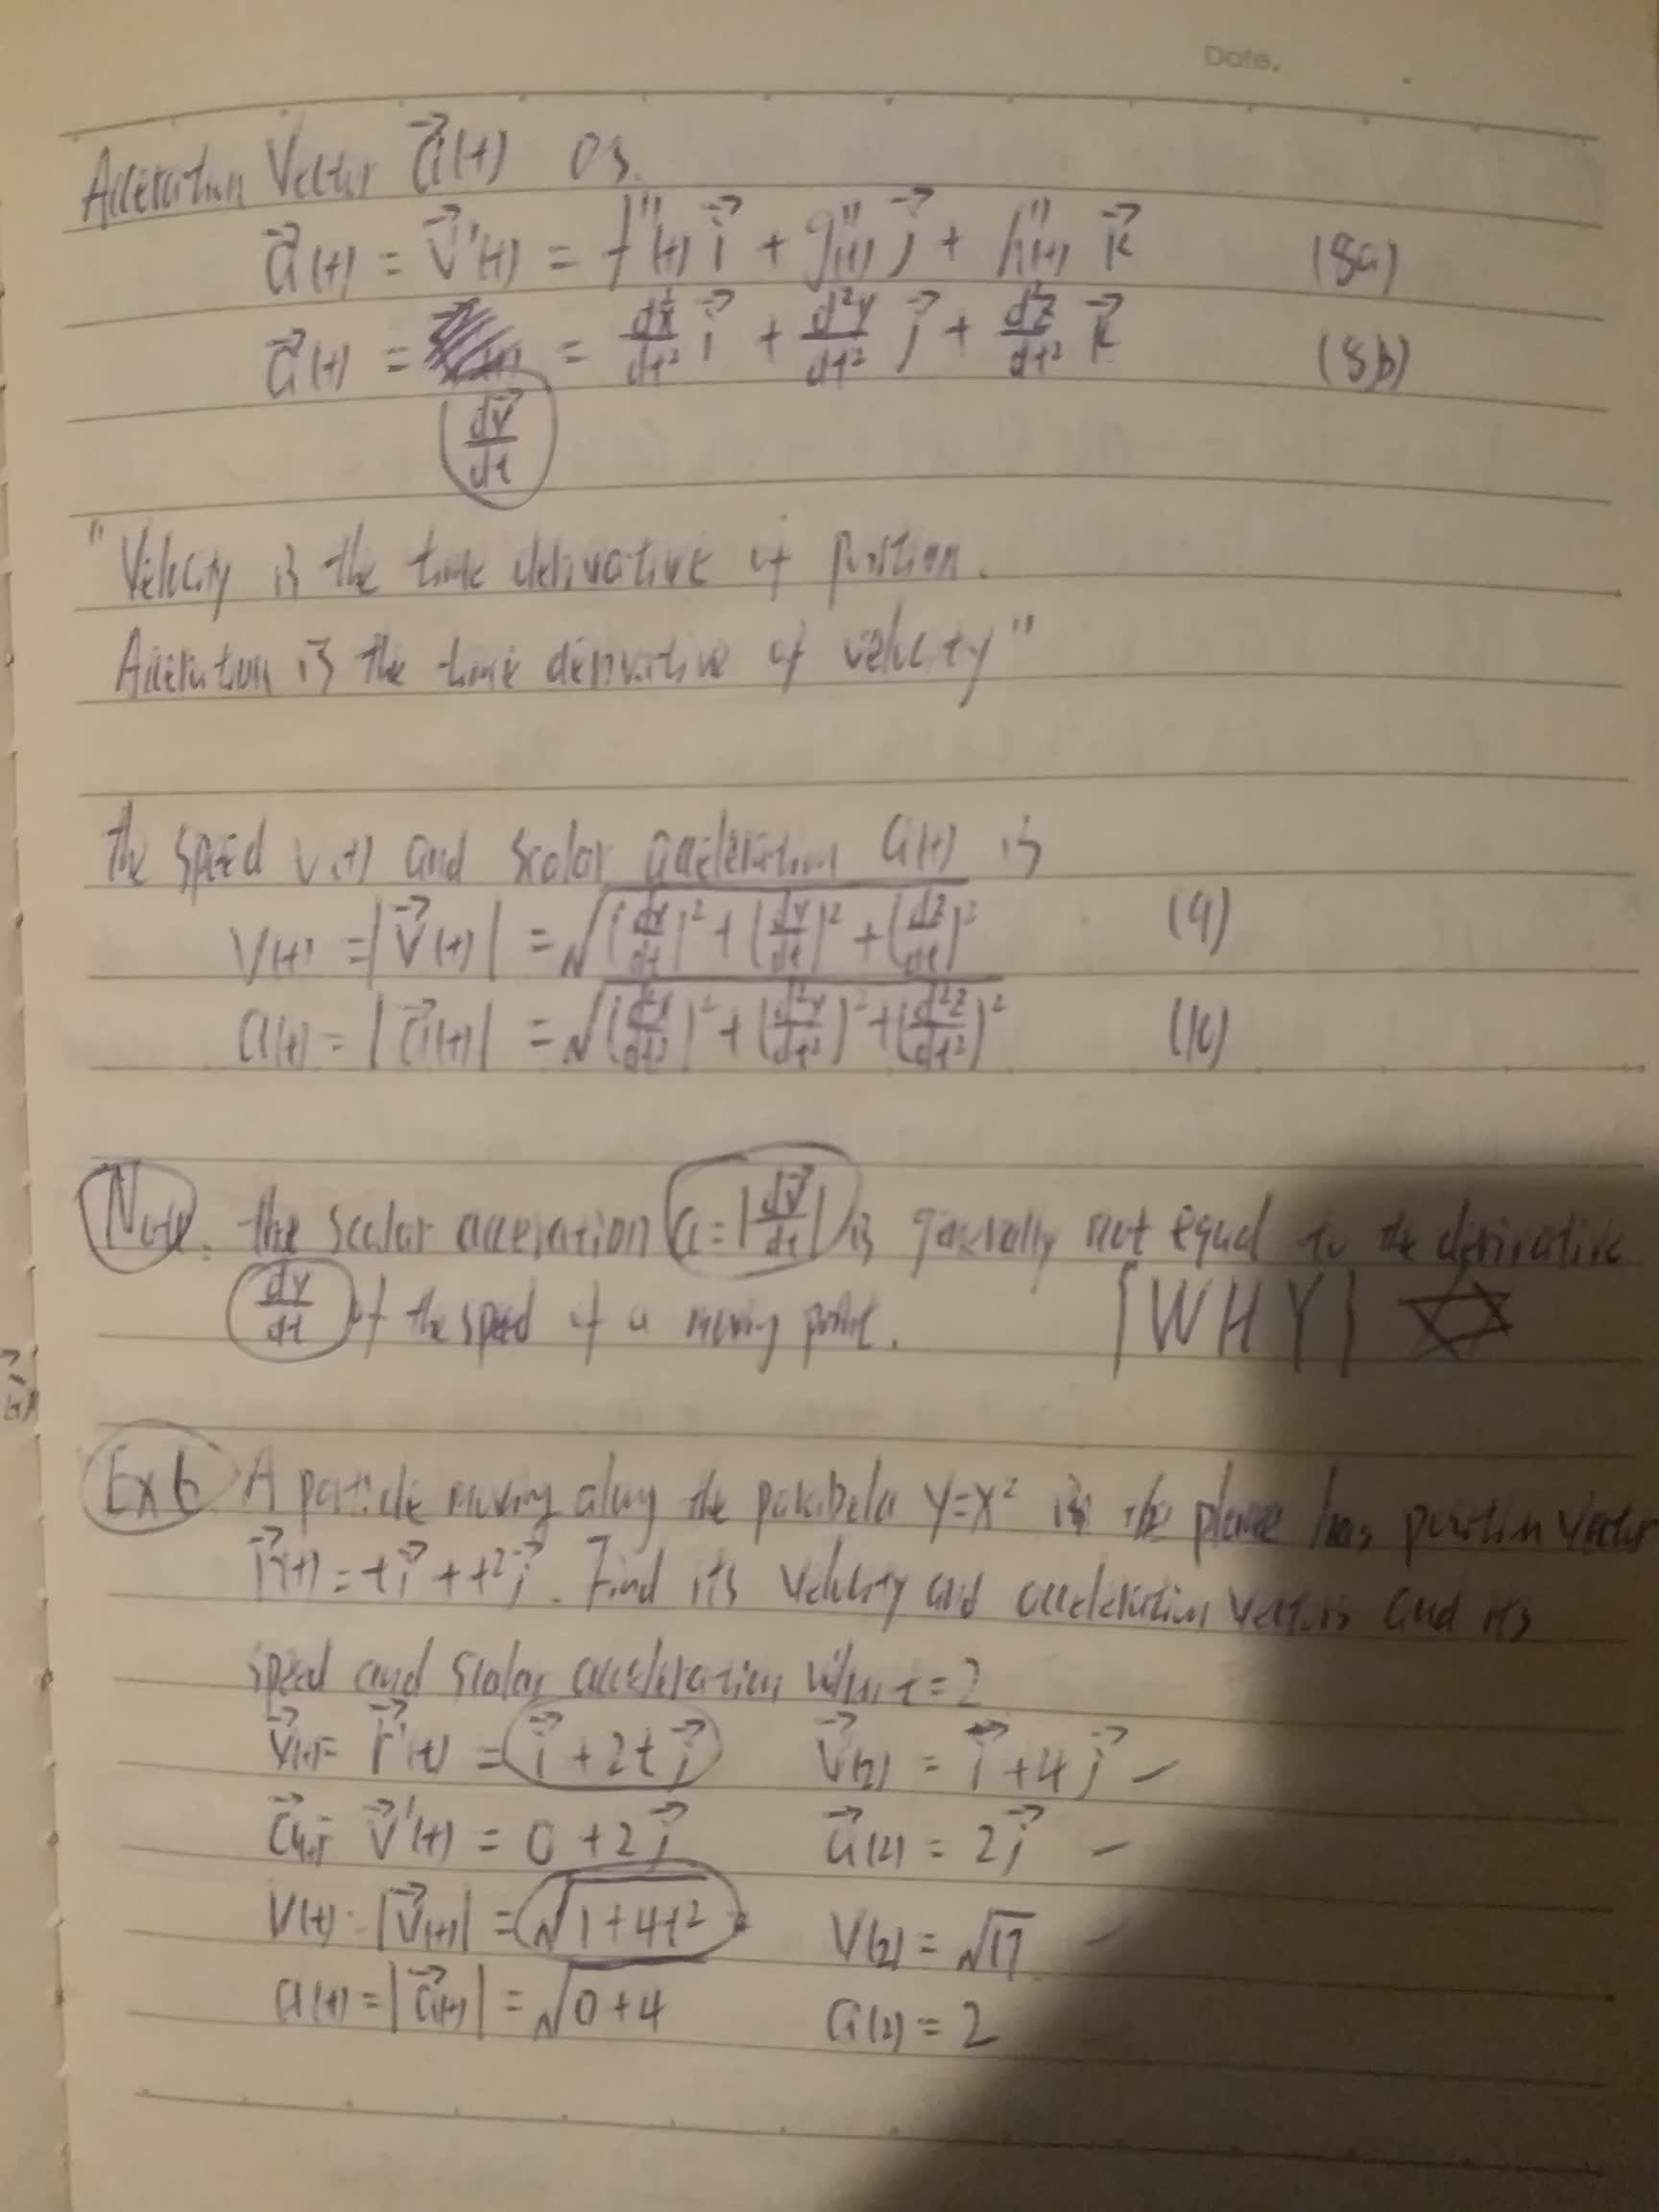 Date.
Acceleration Vector a⃗(t) as.
a⃗(t) = v⃗'(t) = f''(t) i⃗ + g''(t) j⃗ + h''(t) k⃗ (8a)
a⃗(t) = = d²x/dt² i⃗ + d²y/dt² j⃗ + d²z/dt² k⃗ (8b)
dv⃗/dt
"Velocity is the time derivative of position.
Acceleration is the time derivative of velocity"
the speed v(t) and scalar acceleration a(t) is
v(t) = |v⃗(t)| = √(dx/dt)² + (dy/dt)² + (dz/dt)² (9)
a(t) = |a⃗(t)| = √(d²x/dt²)² + (d²y/dt²)² + (d²z/dt²)² (10)
Note. the scalar acceleration a = |dv⃗/dt| is generally not equal to the derivative
dv/dt of the speed of a moving point. [WHY]
Ex 6 A particle moving along the parabola y=x² in the plane has position vector
r⃗(t) = t i⃗ + t² j⃗. Find its velocity and acceleration vectors and its
speed and scalar acceleration when t=2
v⃗(t) = r⃗'(t) = i⃗ + 2t j⃗ v⃗(2) = i⃗ + 4 j⃗
a⃗(t) = v⃗'(t) = 0 + 2 j⃗ a⃗(2) = 2 j⃗
v(t) = |v⃗(t)| = √1+4t² v(2) = √17
a(t) = |a⃗(t)| = √0+4 a(2) = 2